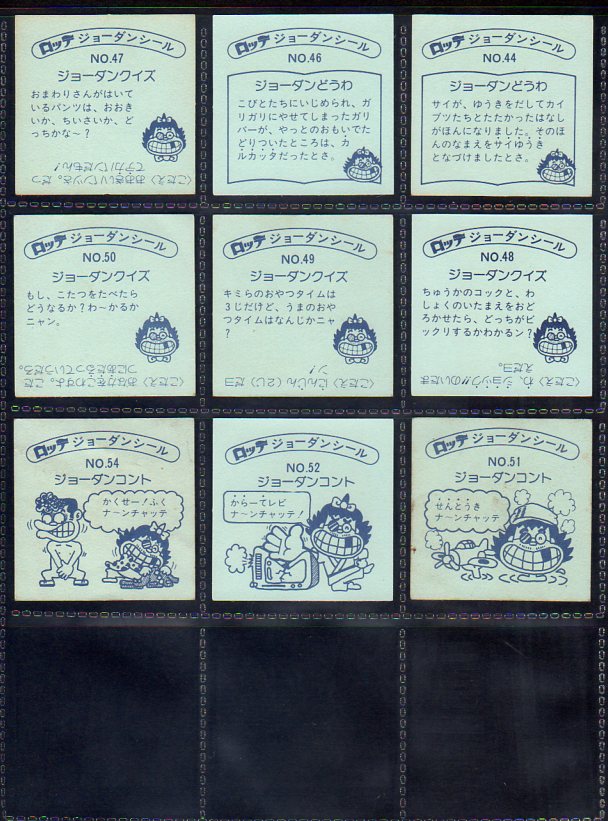 ロッテ ジョーダンシール
NO.47
ジョーダンクイズ
おまわりさんがはいて
いるパンツは、おおき
いか、ちいさいか、ど
っちかな〜?
〈こたえ〉おおきいパンツさ。だっ
てデカパンだもん!
ロッテ ジョーダンシール
NO.46
ジョーダンどうわ
こびとたちにいじめられ、ガリ
ガリにやせてしまったガリ
バーが、やっとのおもいでた
どりついたところは、カ
ルカッタだったとさ。
ロッテ ジョーダンシール
NO.44
ジョーダンどうわ
サイが、ゆうきをだしてカイ
ブツたちとたたかったはなし
がほんになりました。そのほ
んのなまえをサイゆうき
となづけましたとさ。
ロッテ ジョーダンシール
NO.50
ジョーダンクイズ
もし、こたつをたべたら
どうなるか?わ〜かるか
ニャン。
〈こたえ〉おなかをこわすよ。こた
つにあたるっていうだろ。
ロッテ ジョーダンシール
NO.49
ジョーダンクイズ
キミらのおやつタイムは
3じだけど、うまのおや
つタイムはなんじかニャ
?
〈こたえ〉にんじん(2じ)だヨ
ン!
ロッテ ジョーダンシール
NO.48
ジョーダンクイズ
ちゅうかのコックと、わ
しょくのいたまえをおど
ろかせたら、どっちがビ
ックリするかわかるン?
〈こたえ〉わ、ショック!!のいたま
えだヨ。
ロッテ ジョーダンシール
NO.54
ジョーダンコント
かくせー!ふく
ナ〜ンチャッテ
ロッテ ジョーダンシール
NO.52
ジョーダンコント
からーテレビ
ナ〜ンチャッテ!
ロッテ ジョーダンシール
NO.51
ジョーダンコント
せんとうき
ナ〜ンチャッテ